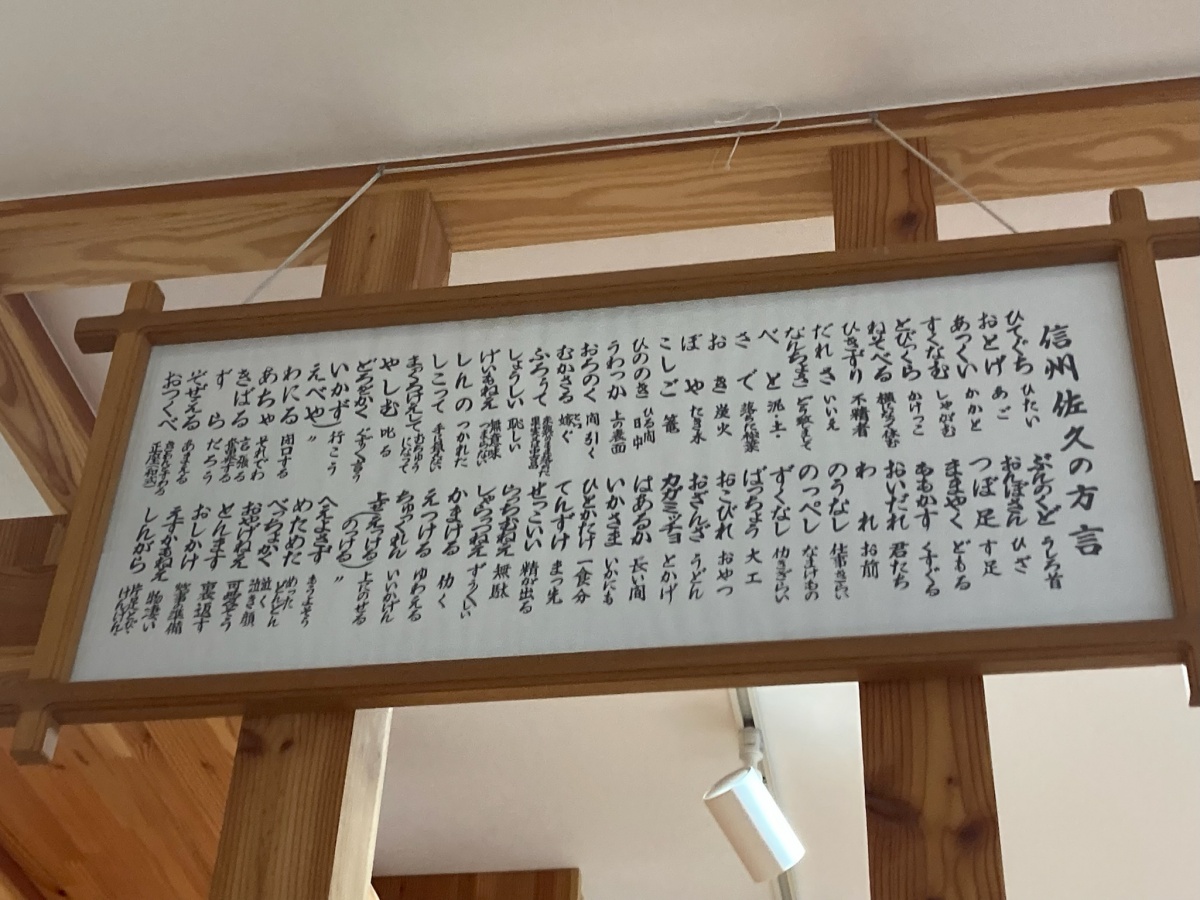 信州佐久の方言
ひてぐち ひたい
おとげ あご
あつくい かかと
すくなむ しゃがむ
とびくら かけっこ
ねそべる 横になって休む
ひきずり 不精者
だれさ いいえ
なんちょき どう致しまして
べと 泥・土
さで 落ちた松葉
おき 炭火
ぼや たき木
こしご 篭
ひのき ひる間 日中
うわっか 上の表面
おろのく 間引く
むかさる 嫁ぐ
ふろうて
しょうしい 恥しい
げいもねえ 無意味 つまらない
しんのの つかれた
しこって
まっくろけえして おおちゅうになって
やしむ 叱る
どろをかく
いかず 行こう
えべや 〃
わにる 閉口する
あちゃ それでわ
きばる 言張る
ずら だろう
ぞぜえる あまえる
おつくべ 正座
ぶんのくど うしろ首
おんぼさん ひざ
つぼ足 す足
ままやく どもる
ももかす くすぐる
おいだれ 君たち
われ お前
のうなし 仕事きらい
のっぺし なまけもの
ずくなし 働きぎらい
ばっちょう 大工
おこびれ おやつ
おざんざ うどん
カガミッチョ とかげ
はあるか 長い間
いかさま いかにも
ひとかたけ 一食分
てんずけ まっ先
せっこいい 精が出る
らっちもねえ 無駄
しゃらっつねえ ずうくいい
かまける 働く
えつける ゆわえる
ちゅっくれん いいかげん
(せえつける) 上にのせる
(のつける) 〃
へえもさず
めためた めった どんどん
べっちょかく 泣く 泣き顔
おやげねえ 可愛そう
とんます 裏返す
おしかけ 炊事の準備
えすかもねえ 物凄い
しんがら 片足とび けんけん